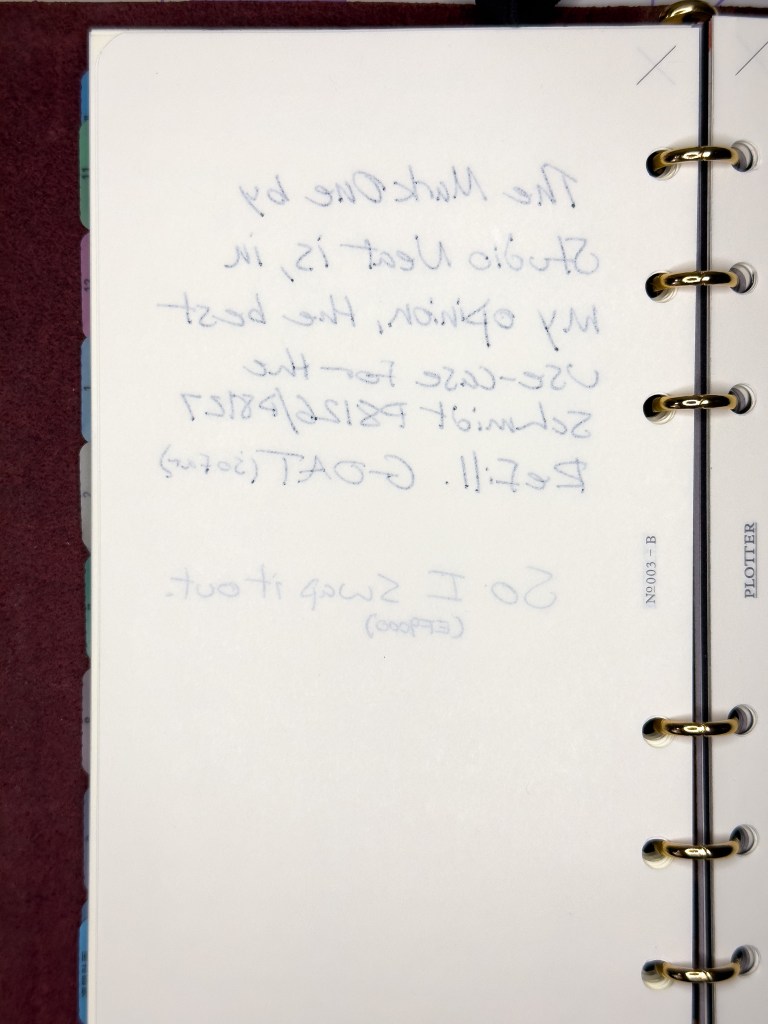 The Mark One by
Studio Neat is, in
my opinion, the best
use-case for the
Schmidt P8126/P8127
Refill. GOAT (so far)
So I swap it out.
(EF9000)
№003 - B
PLOTTER